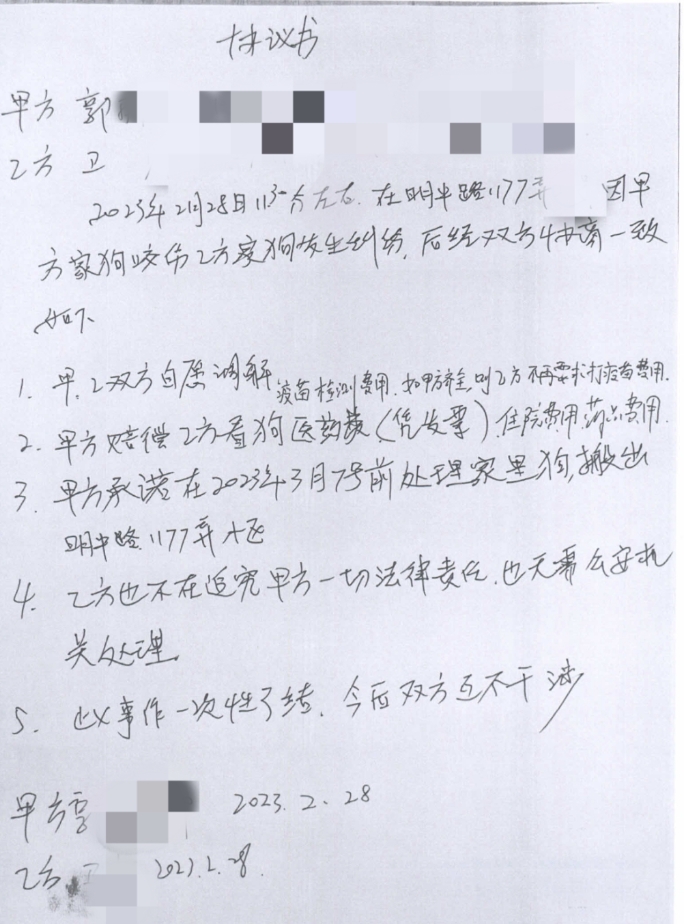 协议书
甲方 郭
乙方 卫
2023年2月28日11:30分左右.在明中路1177弄 因甲
方家狗咬伤乙方家狗发生纠纷,后经双方协商一致
如下
1. 甲.乙双方自愿调解
疫苗检测费用.如甲方 则乙方不再要求打疫苗费用.
2. 甲方赔偿乙方看狗医药费(凭发票).住院费用.药品费用.
3. 甲方承诺在2023年3月7号前处理家里狗,搬出
明中路1177弄小区
4. 乙方也不在追究甲方一切法律责任.也无需公安机
关处理.
5. 此事作一次性了结.今后双方互不干涉
甲方 2023.2.28
乙方 卫 2023.2.28.